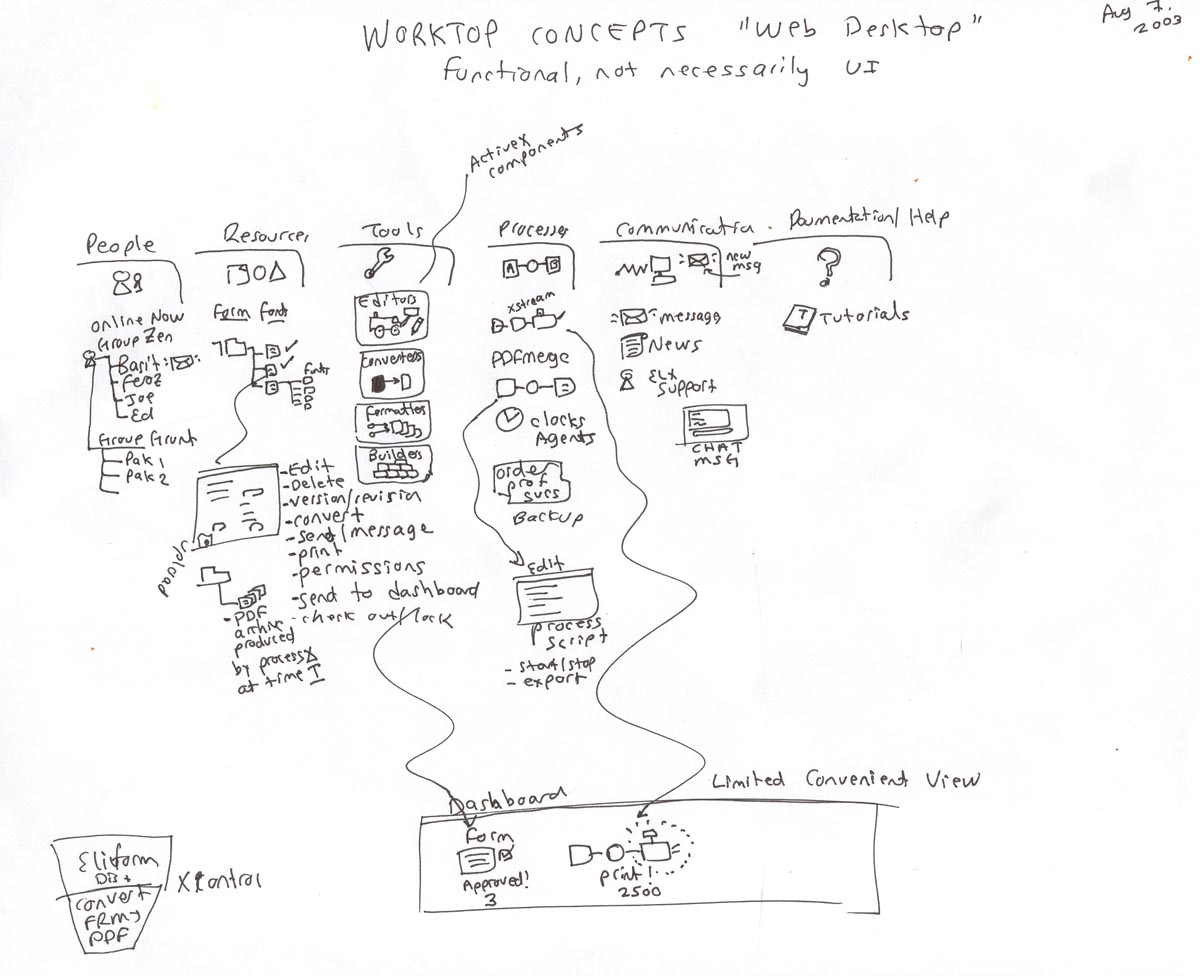 WORKTOP CONCEPTS "Web Desktop"
Functional, not necessarily UI
Aug 7.
2003
ActiveX
components
People
Online Now
Group Zen
Basit
Feroz
Joe
Ed
Group Grunt
Pak 1
Pak 2
Resources
Form Fonts
Fonts
upload
- Edit
- Delete
- version/revision
- convert
- send/message
- print
- permissions
- send to dashboard
- check out/lock
- PDF
produced
by process X
at time T
Tools
Editors
Converters
Formatters
Builders
Processes
A
B
xstream
PDFmege
clocks
Agents
order
prof
svcs
Backup
Edit
process
script
- start/stop
- export
Communication
new
msg
message
News
ELX
Support
CHAT
MSG
Documentation/Help
?
T Tutorials
Limited Convenient View
Dashboard
Form
Approved!
3
print!
2500
Elixform
DB +
convert
FRM→
PDF